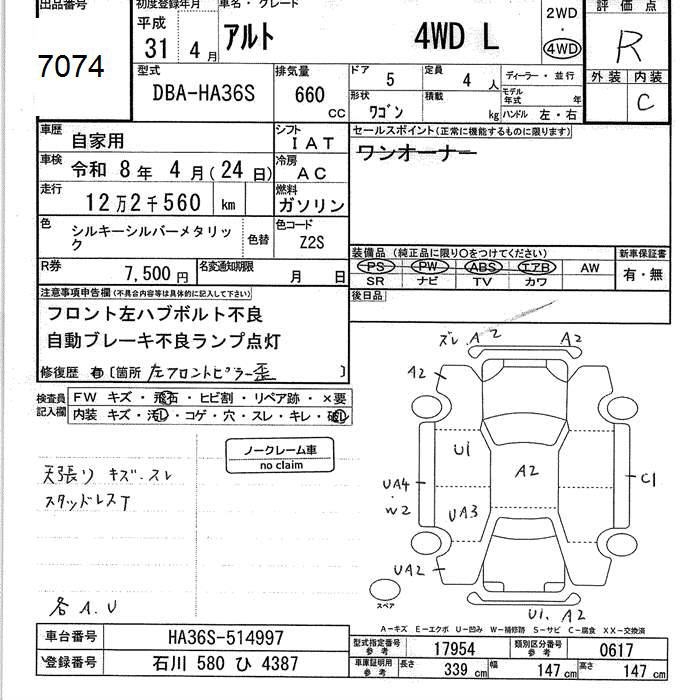 出品番号
7074
初度登録年月
平成
31 4 月
車名・グレード
アルト 4WD L
2WD
・
4WD
評価点
R
外装 内装
C
型式
DBA-HA36S
排気量
660 CC
ドア 5
定員 4 人
ディーラー・並行
形状 ワゴン
積載 kg
モデル年式 年
ハンドル 左・右
車歴 自家用
シフト IAT
車検 令和 8 年 4 月(24 日)
冷房 AC
走行 12万2千560 km
燃料 ガソリン
色 シルキーシルバーメタリック
色替
色コード Z2S
R券 7,500 円
名変通知期限 月 日
セールスポイント(正常に機能するものに限ります)
ワンオーナー
装備品(純正品に限り○をつけてください)
PS PW ABS エアB AW
SR ナビ TV カワ
新車保証書
有・無
後日品
注意事項申告欄(不具合内容等は具体的に記入して下さい)
フロント左ハブボルト不良
自動ブレーキ不良ランプ点灯
修復歴 有 〔箇所 左フロントピラー歪 〕
検査員記入欄
FW キズ・飛石・ヒビ割・リペア跡・×要
内装 キズ・汚れ・コゲ・穴・スレ・キレ・破れ
ノークレーム車
no claim
天張り キズ・スレ
スタッドレスT
各 A.U
ズレ A2 A2
A2
U1
A2
UA4
・
W2
UA3
C1
UA2
スペア
U1. A2
A−キズ E−エクボ U−凹み W−補修跡 S−サビ C−腐食 XX−交換済
車台番号 HA36S-514997
登録番号 石川 580 ひ 4387
型式指定番号 参考 17954
類別区分番号 参考 0617
車庫証明用 参考 長さ 339 cm 幅 147 cm 高さ 147 cm